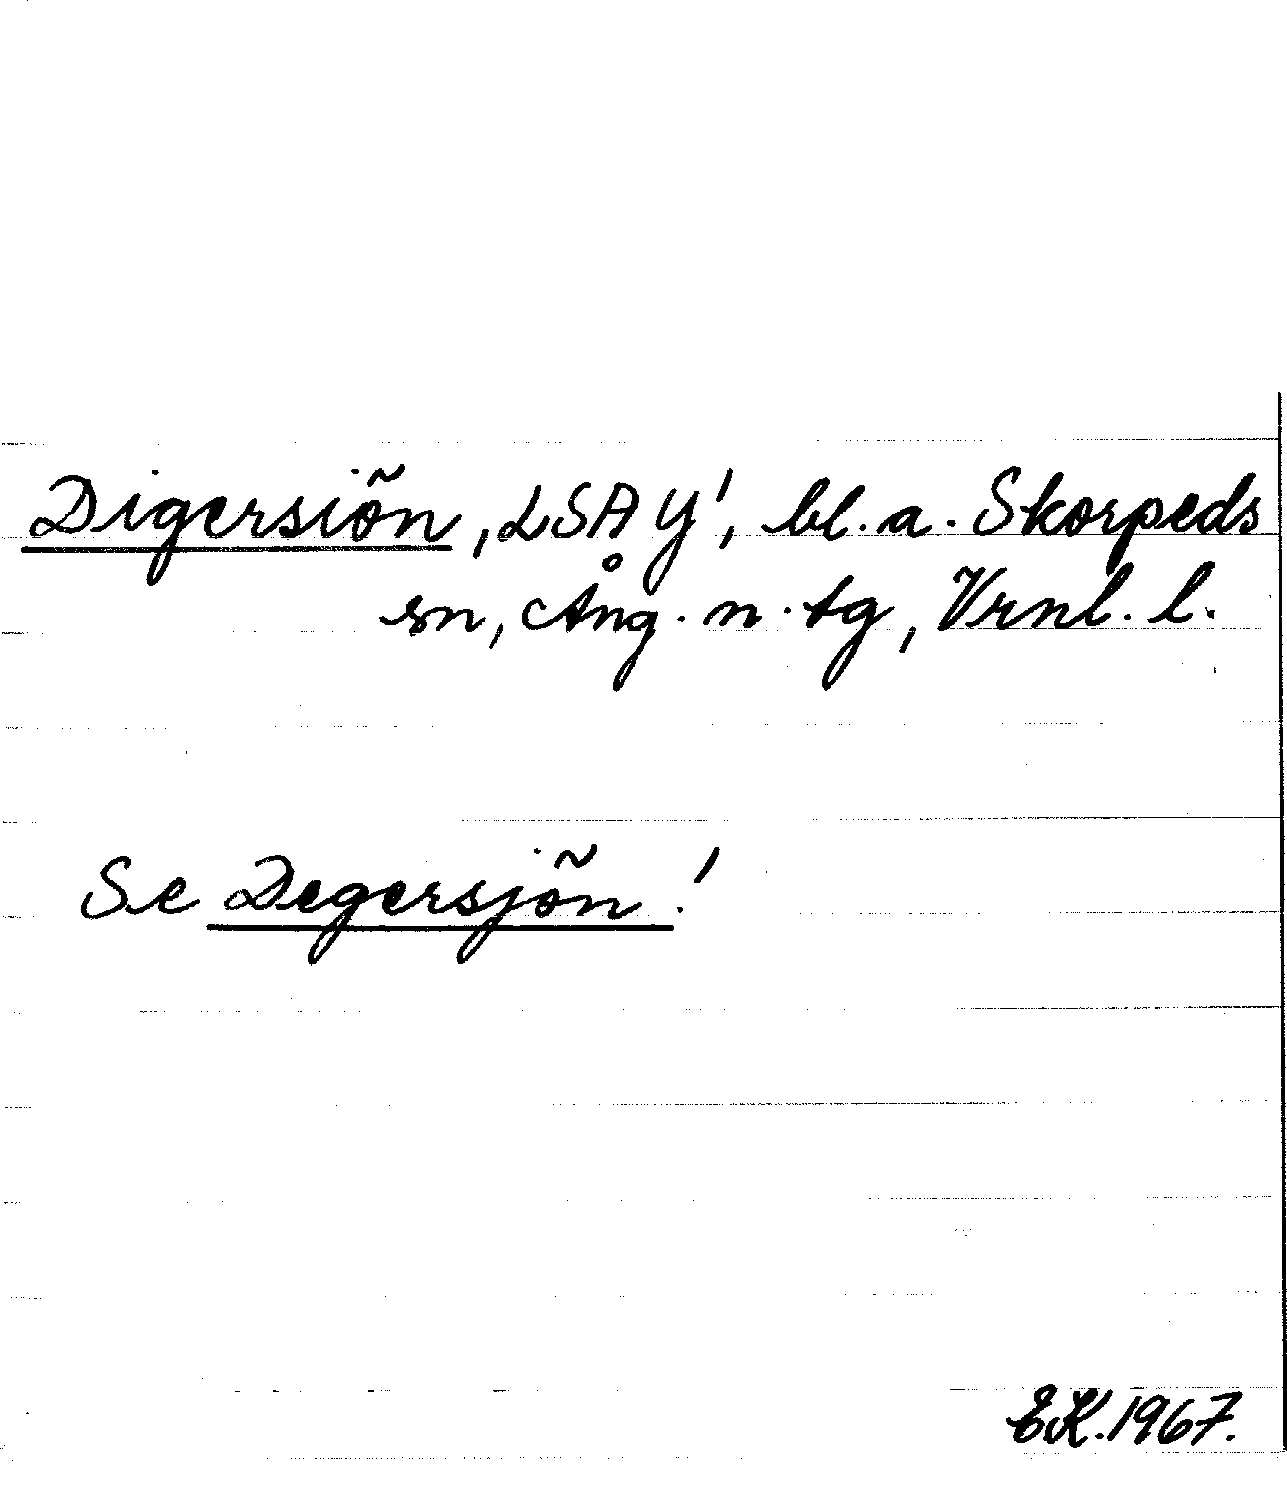 Digersiön, LSA Y1, bl.a. Skorpeds
sn, Ång. n. tg, Vrnl. l.
Se Degersjön!
EK. 1967.